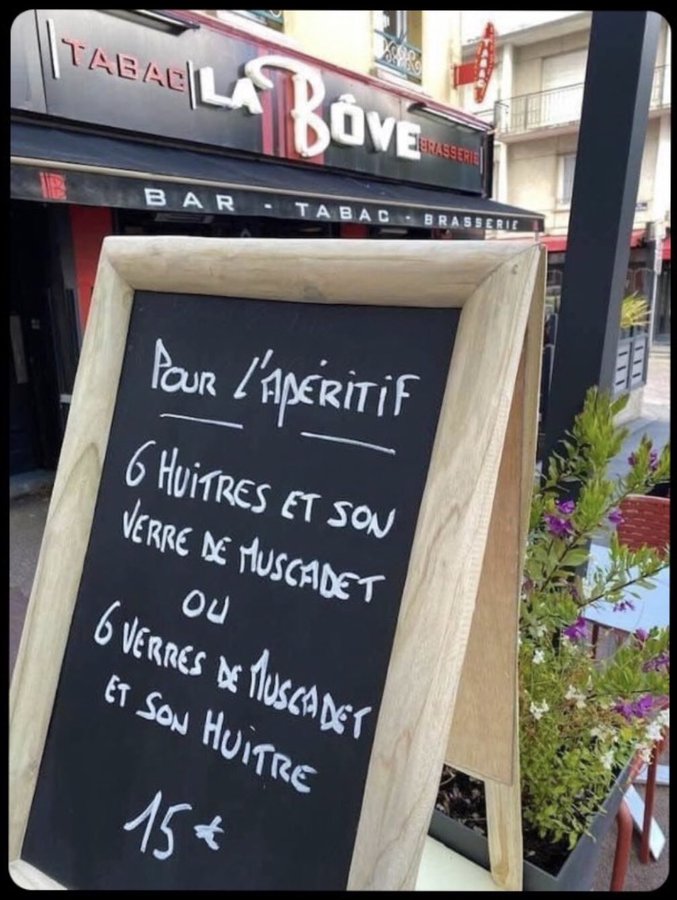 TABAC
LA BÔVE
BRASSERIE
TABAC
B
BAR - TABAC - BRASSERIE
POUR L'APÉRITIF
6 HUITRES ET SON
VERRE DE MUSCADET
OU
6 VERRES DE MUSCADET
ET SON HUITRE
15€